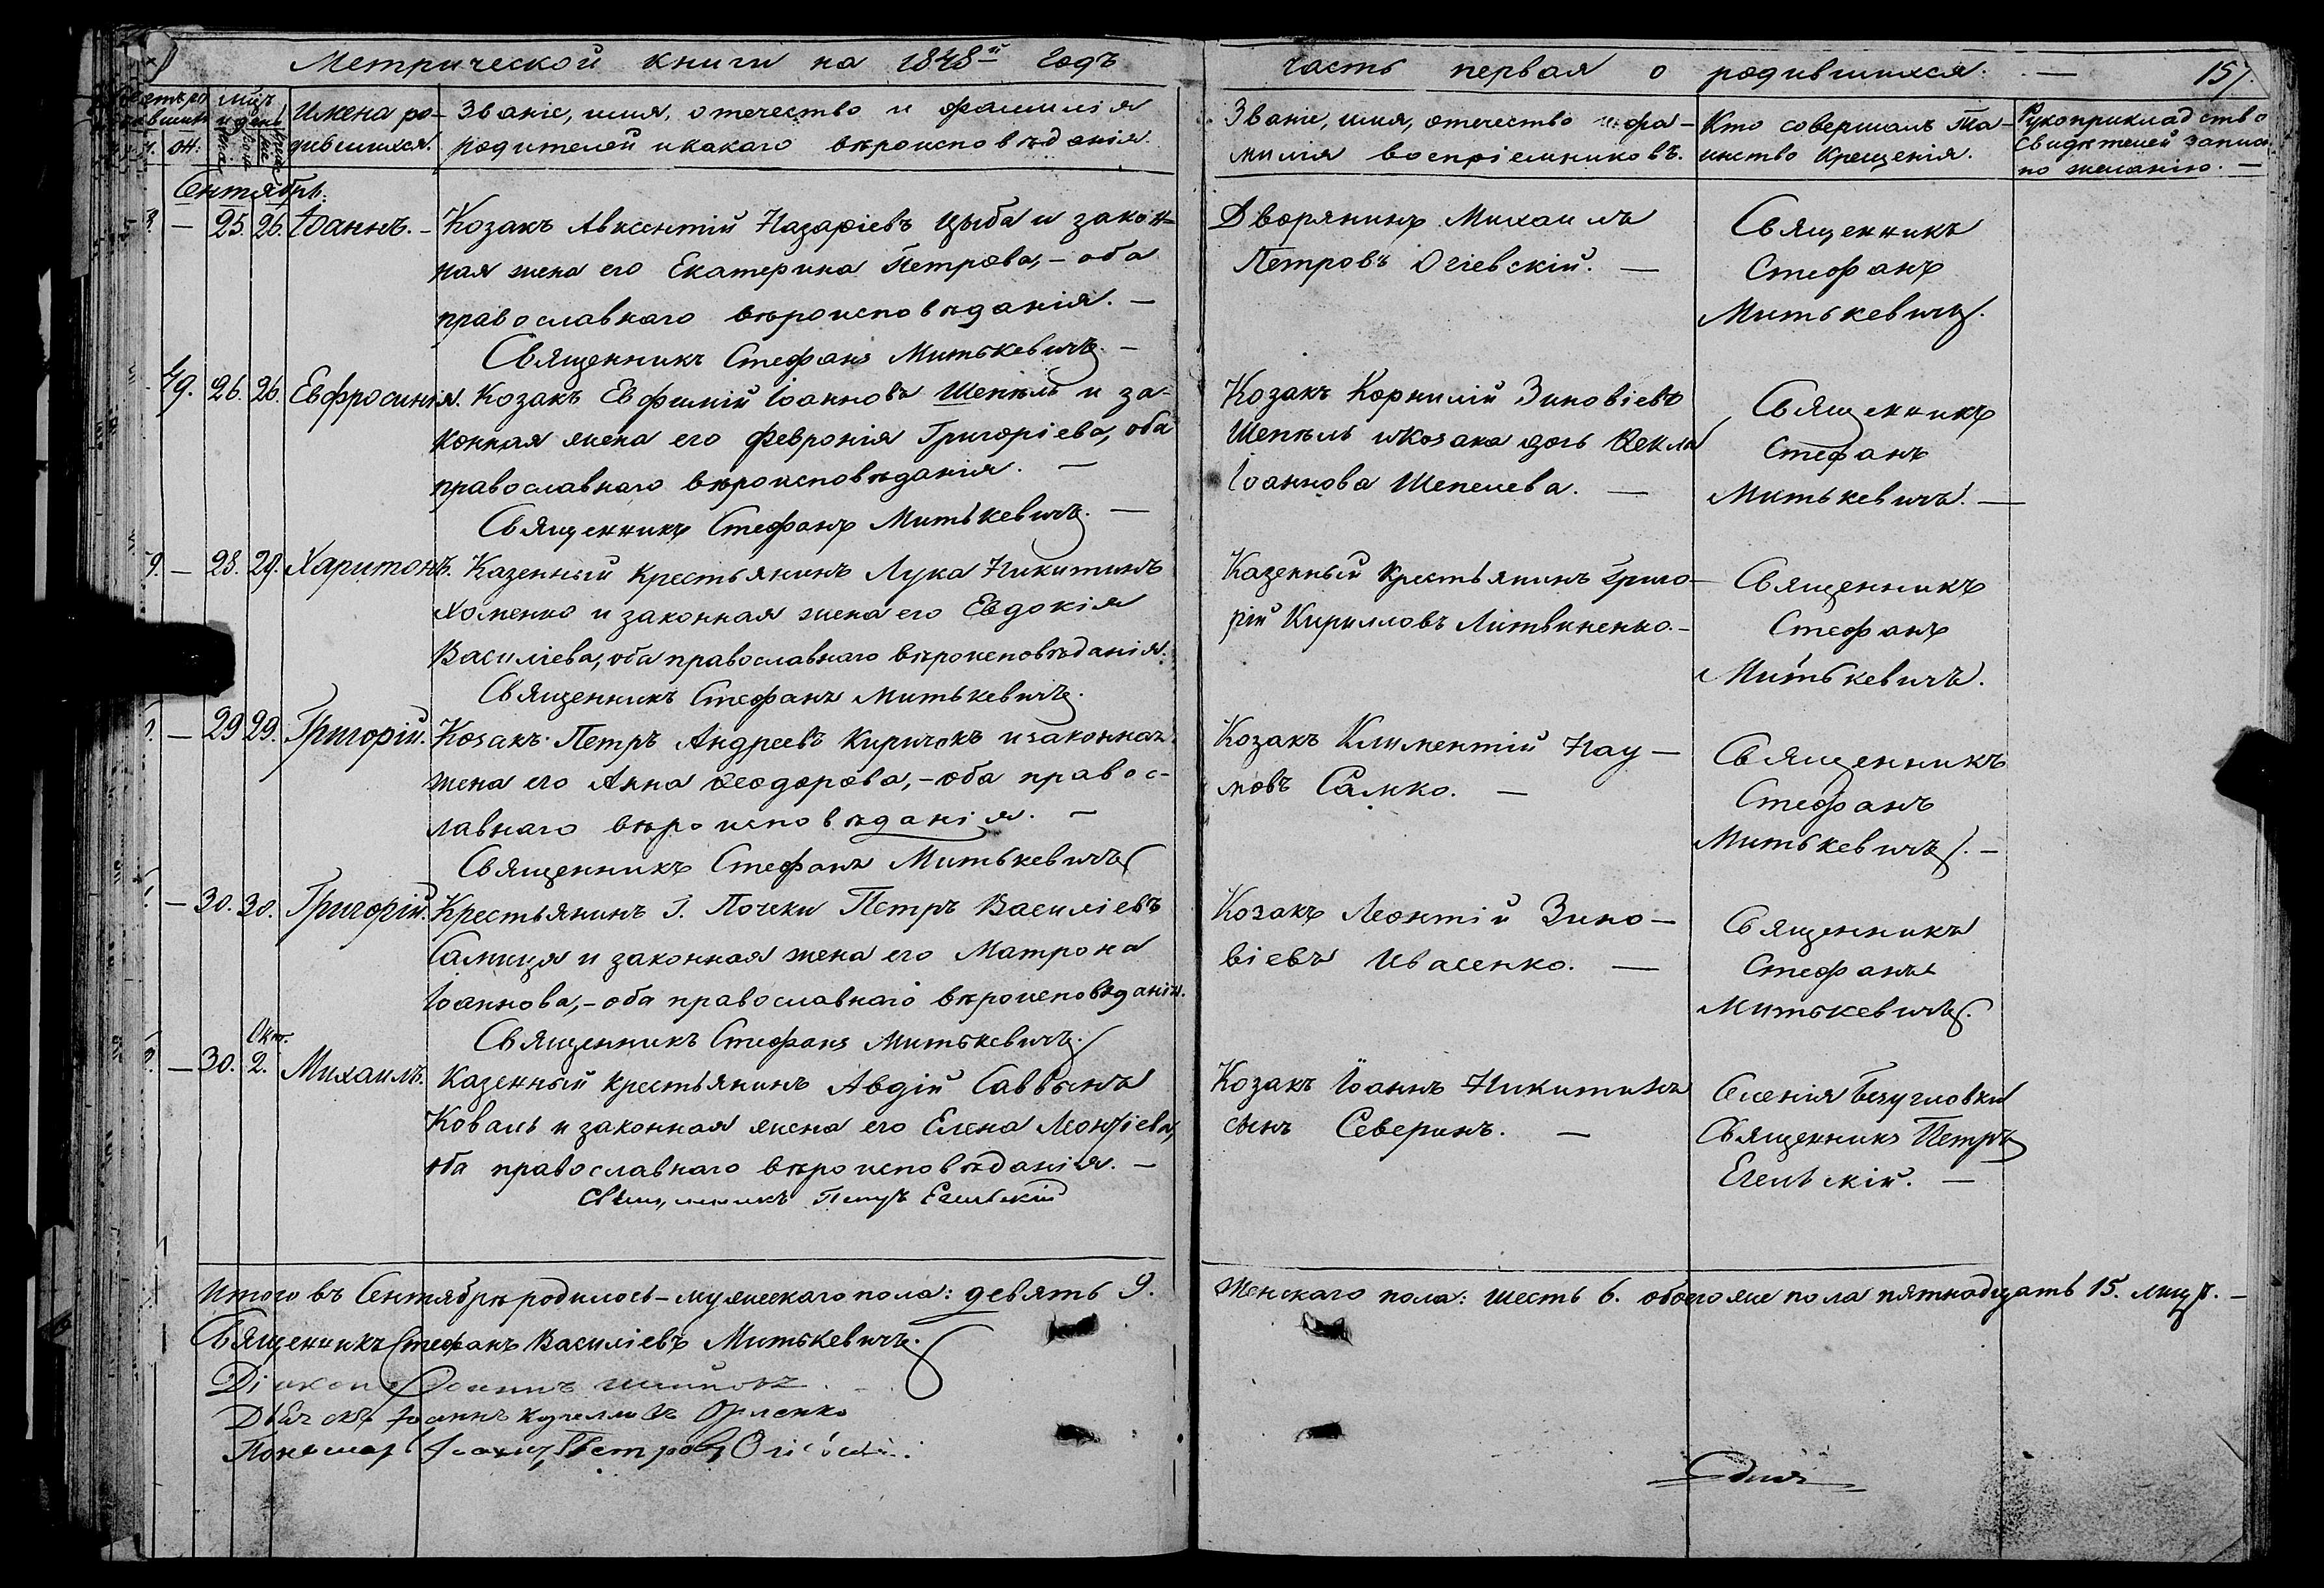 Метрической книги на 1848й годъ
часть первая о родившихся. — 157.
Имена ро-
дившихся.
Званіе, имя, отечество и фамилія
родителей и какаго вѣроисповѣданія.
Званіе, имя, отечество и фа-
милія воспріемниковъ.
Кто совершалъ Та-
инство Крещенія.
Рукоприкладство
свидѣтелей записи
по желанію. —
Сентябрь.
— 25. 26. Іоаннъ. – Козакъ Авксентій Назаріевъ Цыба и закон-
ная жена его Екатерина Петрова, – оба
православнаго вѣроисповѣданія. —
Священникъ Стефанъ Митькевичъ. —
Дворянинъ Михаилъ
Петровъ Огіевскій. —
Священникъ
Стефанъ
Митькевичъ.
49. 26. 26. Евфросинія. Козакъ Евфимій Іоанновъ Шепѣль и за-
конная жена его Февронія Григоріева, оба
православнаго вѣроисповѣданія. —
Священникъ Стефанъ Митькевичъ. —
Козакъ Корнилій Зиновіевъ
Шепѣль и козака дочь Ѳекла
Іоаннова Шепелева. —
Священникъ
Стефанъ
Митькевичъ. —
— 28. 29. Харитонъ. Казенный крестьянинъ Лука Никитинъ
Хоменко и законная жена его Евдокія
Василіева, оба православнаго вѣроисповѣданія.
Священникъ Стефанъ Митькевичъ.
Казенный крестьянинъ Григо-
рій Кирилловъ Литвиненко. –
Священникъ
Стефанъ
Митькевичъ.
— 29 29. Григорій. Козакъ Петръ Андреевъ Киричокъ и законная
жена его Анна Ѳеодорова, – оба правос-
лавнаго вѣроисповѣданія. —
Священникъ Стефанъ Митькевичъ
Козакъ Климентій Нау-
мовъ Самко. —
Священникъ
Стефанъ
Митькевичъ. –
— 30. 30. Григорій. Крестьянинъ Г. Почеки Петръ Василіевъ
Самиця и законная жена его Матрона
Іоаннова, – оба православнаго вѣроисповѣданія.
Священникъ Стефанъ Митькевичъ.
Козакъ Леонтій Зино-
віевъ Ивасенко. —
Священникъ
Стефанъ
Митькевичъ.
Окт.
— 30. 2. Михаилъ. Казенный крестьянинъ Авдій Саввинъ
Коваль и законная жена его Елена Леонтіева,
оба православнаго вѣроисповѣданія. —
Священникъ Петръ
Козакъ Іоаннъ Никитинъ
сынъ Северинъ. —
Селенія Безугловки
Священникъ Петръ
Итого въ Сентябрѣ родилось – мужескаго пола: девять 9.
Женскаго пола: шесть 6. обоего же пола пятнадцать 15. лицъ. —
Священникъ Стефанъ Василіевъ Митькевичъ.
Діаконъ
Дьячекъ Іоаннъ Орленко
Пономарь Петровъ